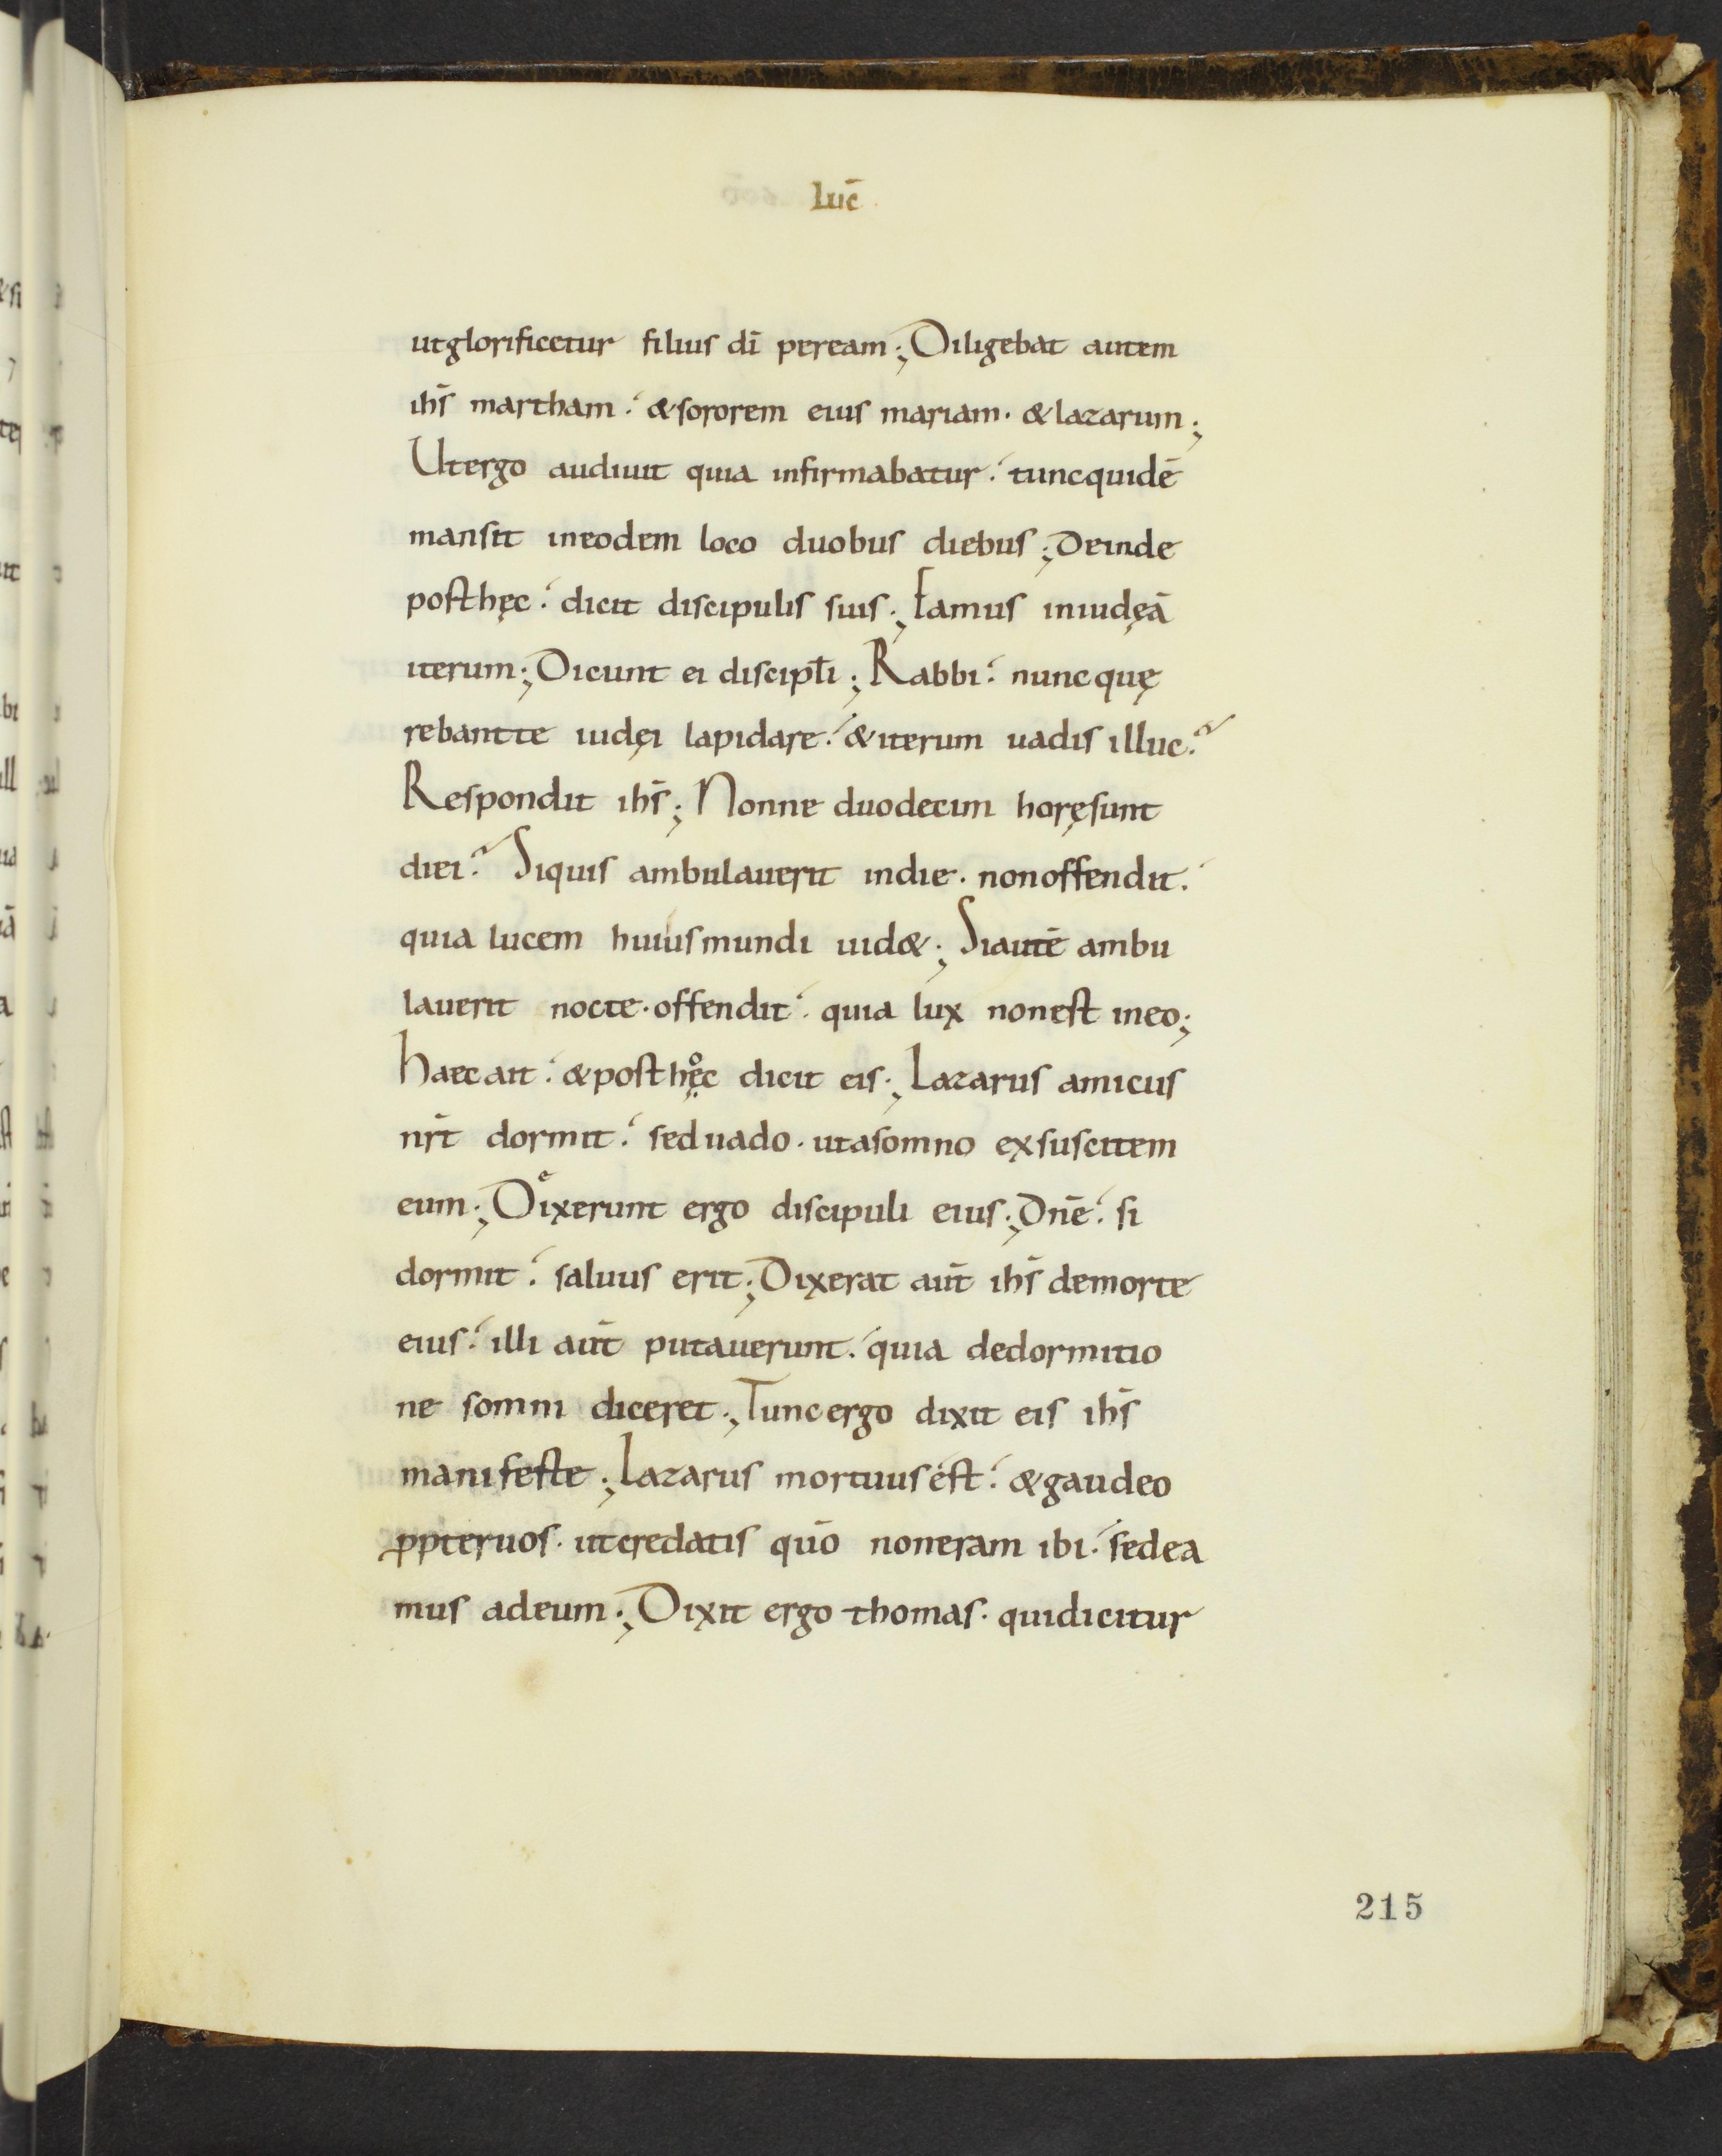 luc̄
utglorificetur filius dī peream; Diligebat autem
ihs̄ martham: &sororem eius mariam· &lazarum;
Utergo audiuit quia infirmabatur: tuncquidē
mansit ineodem loco duobus diebus; Deinde
posthęc: dicit discipulis suis; Eamus iniudęā
iterum; Dicunt ei discipłi; Rabbi: nuncquę
rebantte iudęi lapidare: &iterum uadis illuc?
Respondit ihs̄; Nonne duodecim horęsunt
diei? Siquis ambulauerit indie· nonoffendit:
quia lucem huiusmundi uid&; Siautē ambu
lauerit nocte·offendit: quia lux nonest ineo;
haecait: &posthęc dicit eis; Lazarus amicus
nr̄t dormit: seduado· utasomno exsuscitem
eum; Dixerunt ergo discipuli eius; Dnē: si
dormit: saluus erit; Dixerat aut̄ ihs̄ demorte
eius: illi aut̄ putauerunt: quia dedormitio
ne somni diceret; Tuncergo dixit eis ihs̄
manifeste; Lazarus mortuusést: &gaudeo
ꝓpteruos· utcredatis quō noneram ibi: sedea
mus adeum; Dixit ergo thomas· quidicitur
215